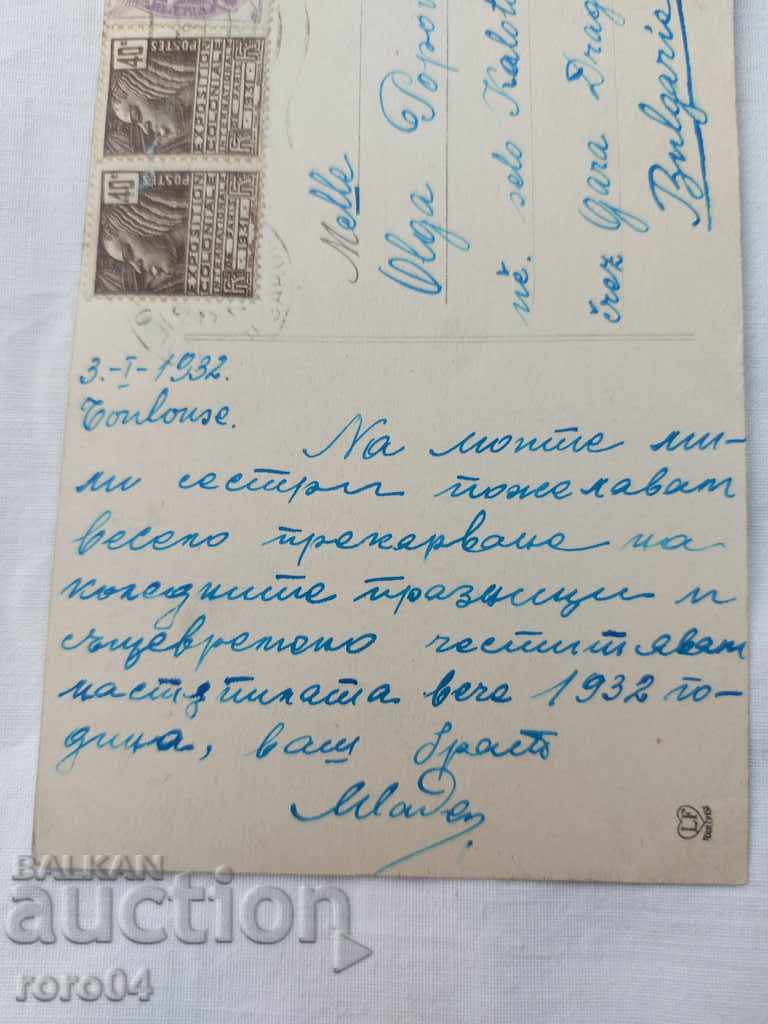 40c
POSTES
EXPOSITION
COLONIALE
INTERNATIONALE
DE PARIS
1931
40c
POSTES
EXPOSITION
COLONIALE
INTERNATIONALE
DE PARIS
1931
Melle
Olga Popov
selo Kalot
črez Gara Drag
Bulgaris
3.-I-1932.
Toulouse.
На моите ми-
ли сестри пожелавам
весело прекарване на
коледните празници и
същевремено честитявам
настѫпилата вече 1932 го-
дина, ваш братъ
Младен
LF
BALKAN
auction
roro04